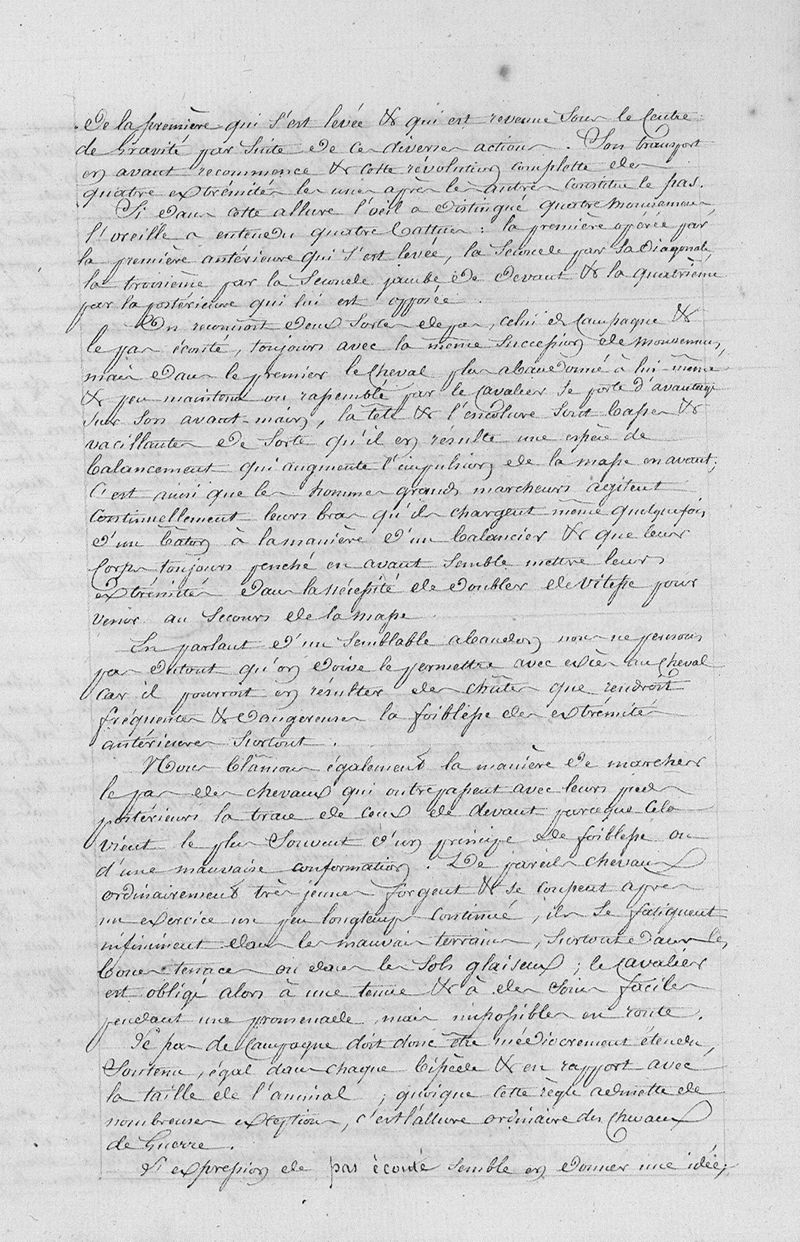 de la première qui s'est levée & qui est revenue sous le Centre
de Gravité par suite de ces diverses actions. Son transport
en avant recommence & cette révolution complette des
quatre extrémités les unes après les autres constitue le pas.
Si dans cette allure l'oeil a distingué quatre mouvemens,
l'oreille a entendu quatre battues : la première opérée par
la première antérieure qui s'est levée, la seconde par sa diagonale
la troisième par la seconde jambe de devant & la quatrième
par la postérieure qui lui est opposée.
On reconnoit deux sortes de pas, celui de Campagne &
le pas écouté, toujours avec la même succession de mouvemens,
mais dans le premier le Cheval plus abandonné à lui-même
& peu maintenu ou rassemblé par le Cavalier se porte d'avantage
sur son avant-main, la tête & l'encolure sont basses &
vacillantes de sorte qu'il en résulte une espèce de
balancement qui augmente l'impulsion de la masse en avant;
C'est ainsi que les hommes grands marcheurs agitent
Continuellement leurs bras qu'ils chargent même quelquefois
d'un bâton à la manière d'un balancier & que leur
Corps toujours penché en avant semble mettre leurs
extrémités dans la nécessité de doubler de vitesse pour
venir au secours de la masse
En parlant d'un semblable abandon nous ne pensons
pas du tout qu'on doive le permettre avec excès au Cheval
car il pourroit en résulter des chûtes que rendroit
fréquentes & dangereuses la foiblesse des extrémités
antérieures surtout.
Nous blâmons également la manière de marcher
le pas des chevaux qui outrepassent avec leurs pieds
postérieurs la trace de ceux de devant parceque cela
vient le plus souvent d'un principe de foiblesse ou
d'une mauvaise conformation. De pareils chevaux
ordinairement très jeunes forgent & se coupent après
un exercice un peu longtems continué, ils se fatiguent
infiniment dans les mauvais terrains, surtout dans les
boues tenaces ou dans les sols glaiseux ; le Cavalier
est obligé alors à une tenue & à des soins faciles
pendant une promenade mais impossibles en route.
Le pas de Campagne doit donc être médiocrement étendu,
Soutenu, égal dans chaque bipède & en rapport avec
la taille de l'animal ; quoique cette règle admette de
nombreuses exceptions, c'est l'allure ordinaire des Chevaux
de Guerre.
L'expression de pas écouté semble en donner une idée,